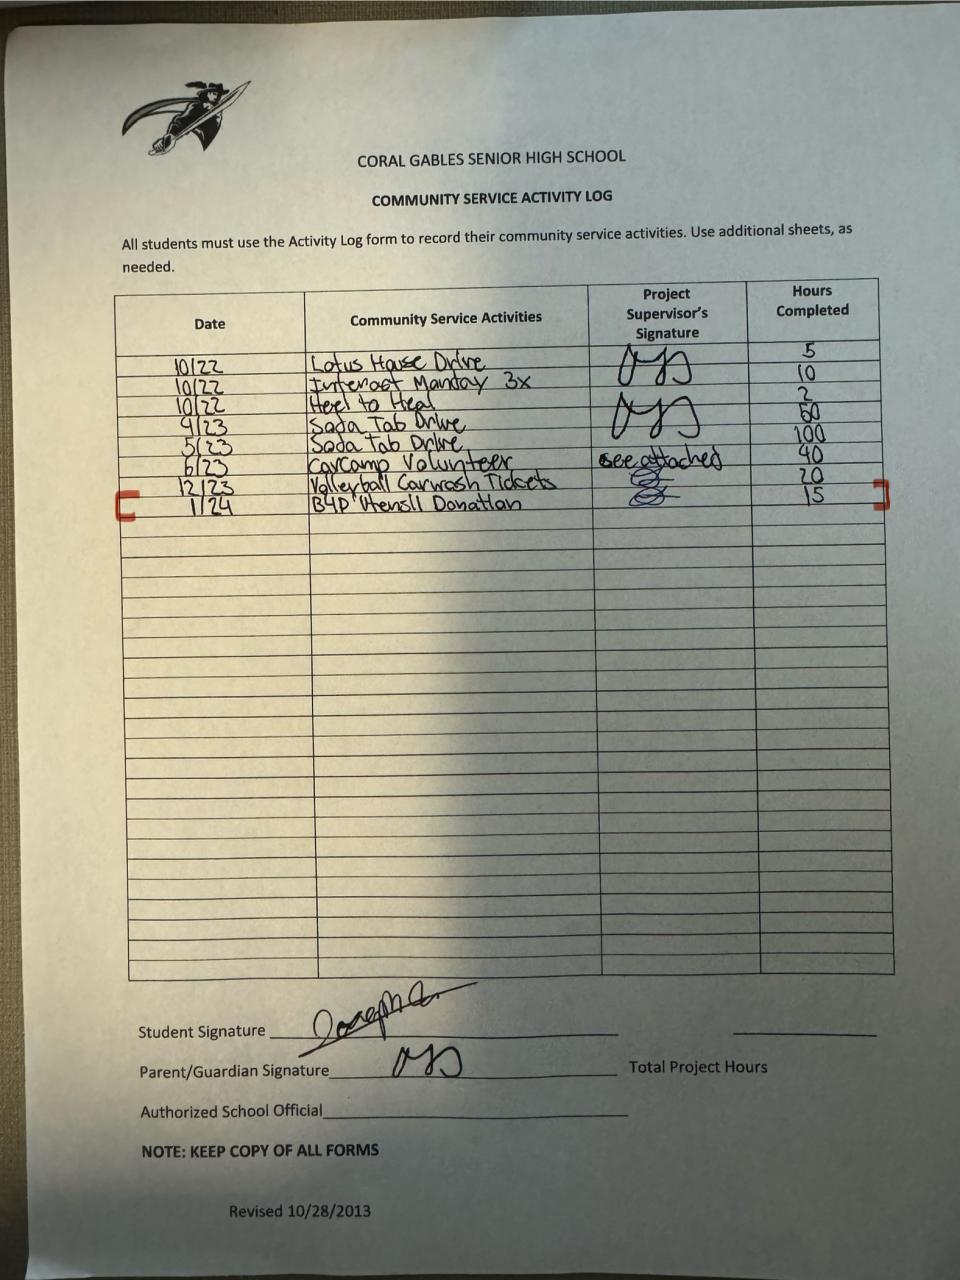 CORAL GABLES SENIOR HIGH SCHOOL
COMMUNITY SERVICE ACTIVITY LOG
All students must use the Activity Log form to record their community service activities. Use additional sheets, as
needed.
Date Community Service Activities Project Supervisor's Signature Hours Completed
10/22 Lotus House Drive 5
10/22 Interact Monday 3x 10
10/22 Heel to Heal 2
4/23 Soda Tab Drive
5/23 Soda Tab Drive 100
6/23 CavCamp Volunteer see attached 40
12/23 Volleyball Carwash Tickets 20
1/24 B4P Utensil Donation 15
Student Signature
Parent/Guardian Signature Total Project Hours
Authorized School Official
NOTE: KEEP COPY OF ALL FORMS
Revised 10/28/2013